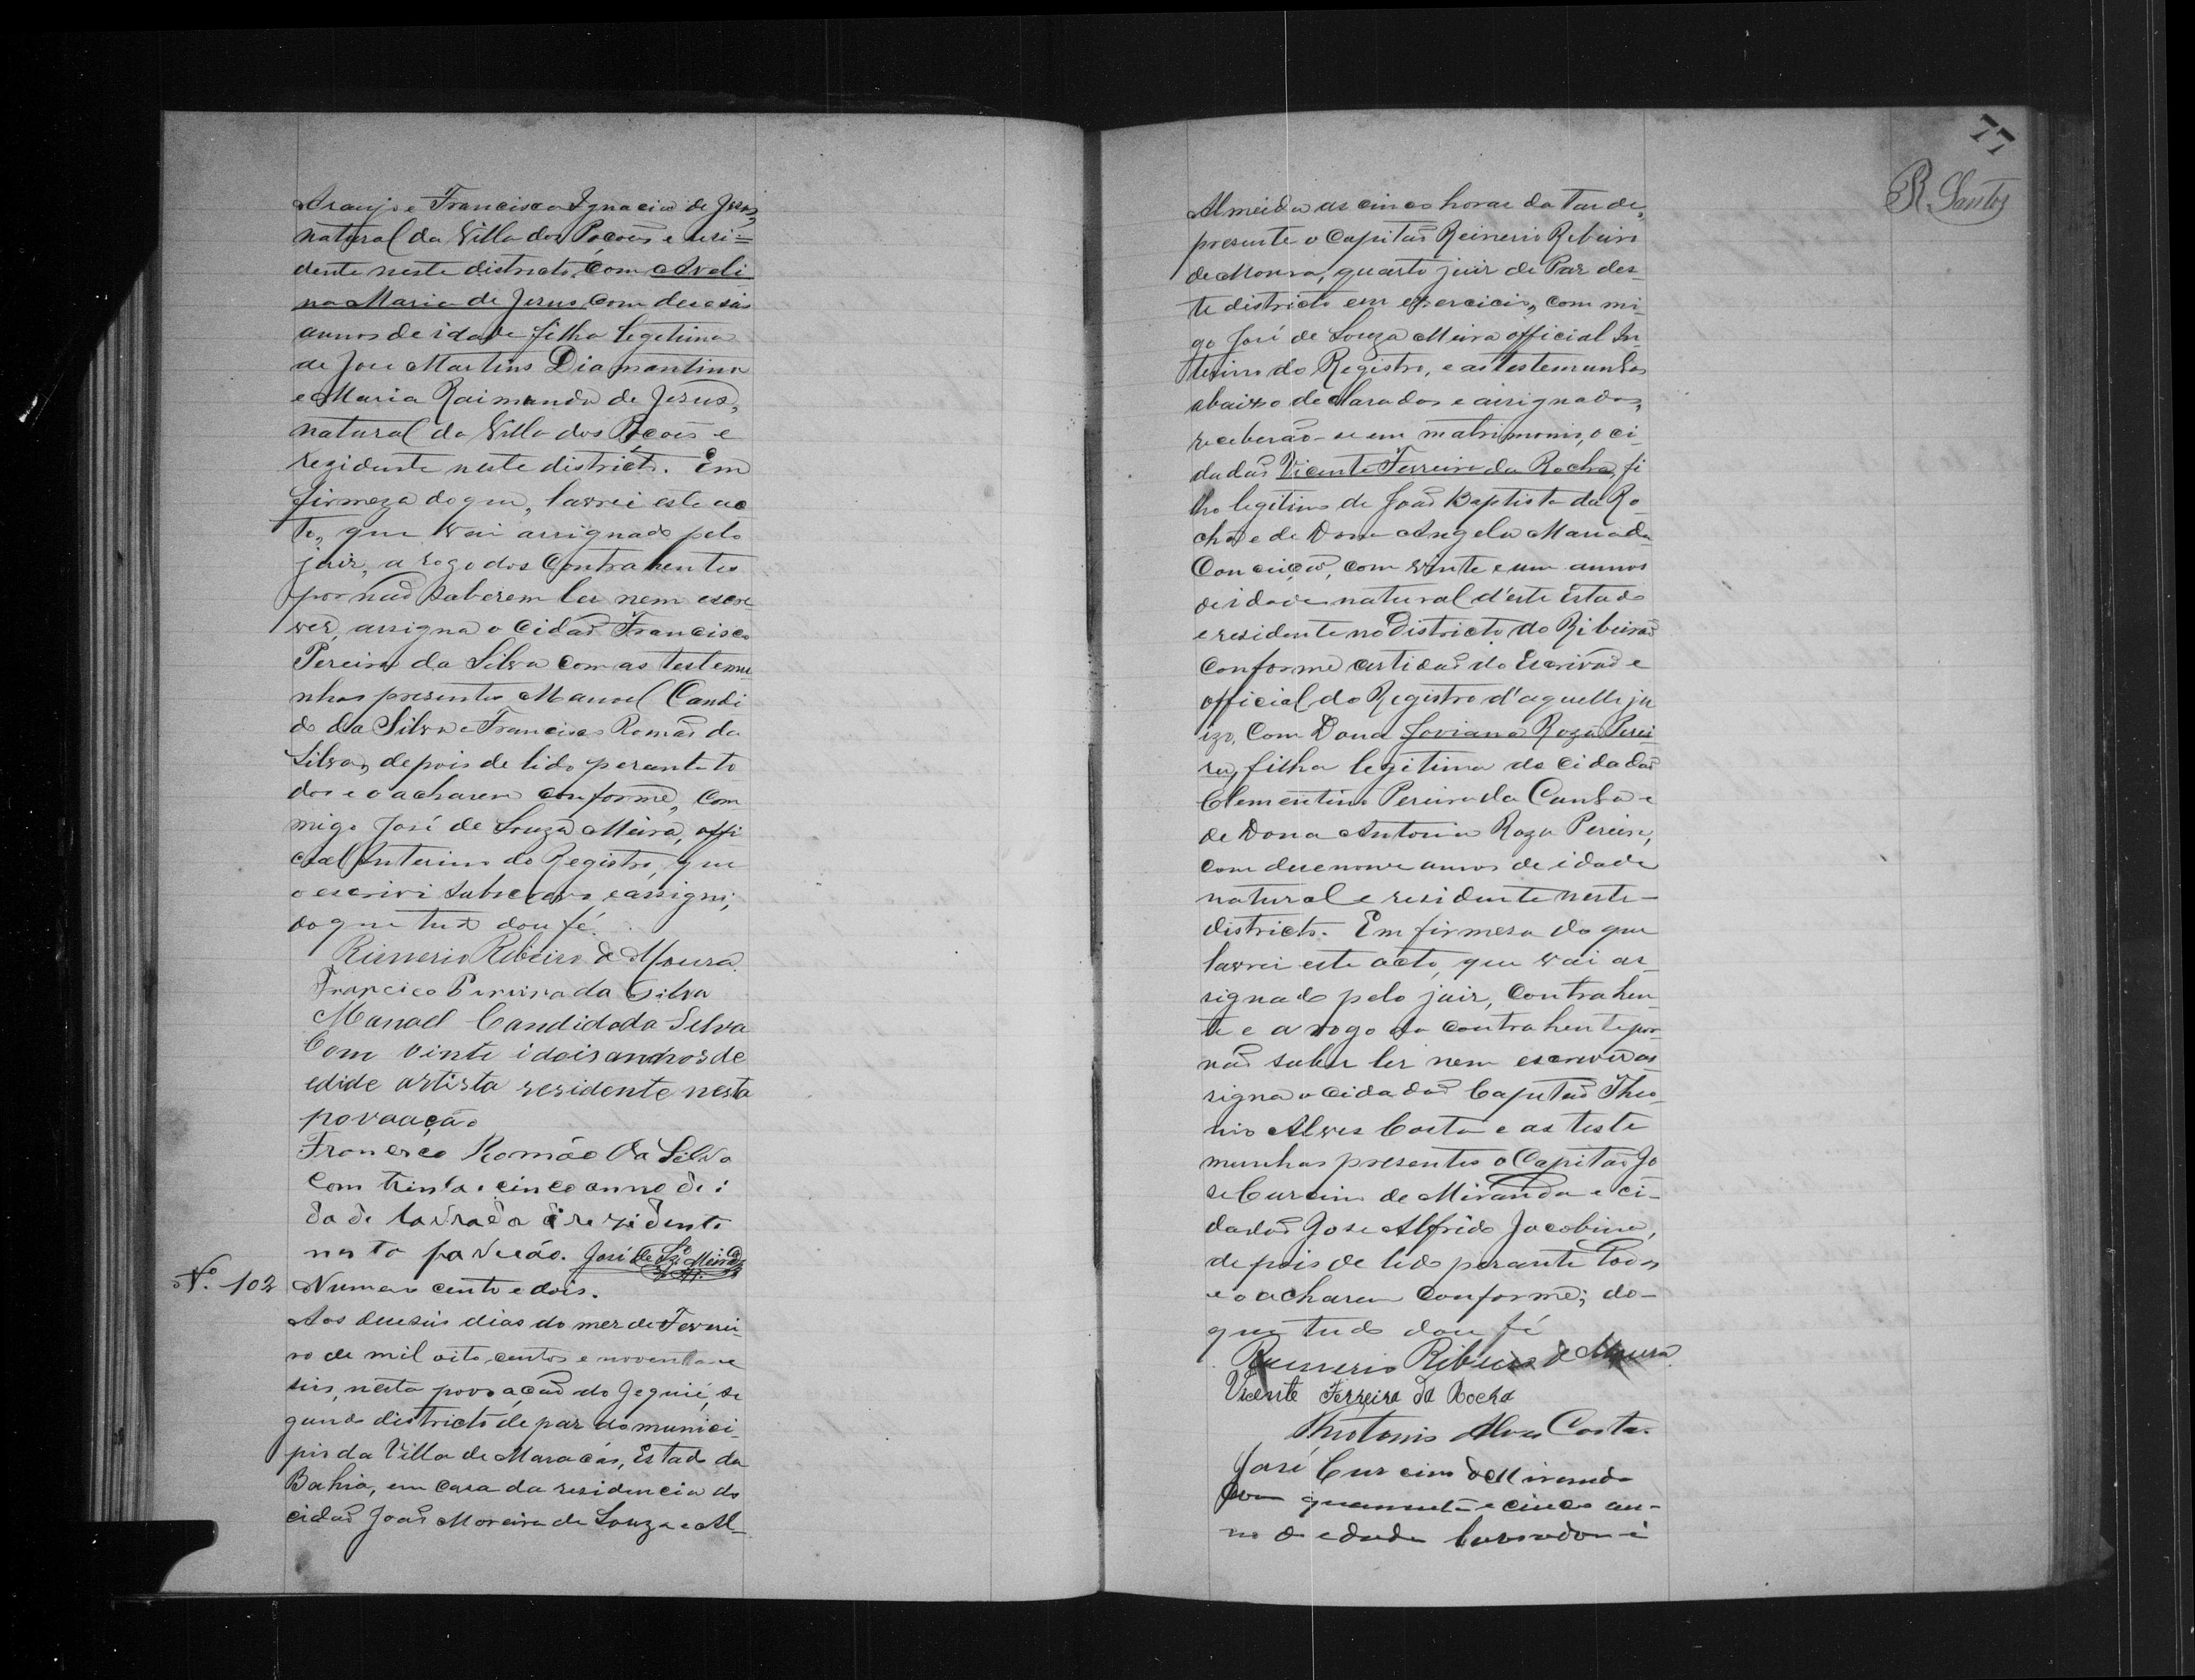 Araujo e Francisca Ignacia de Jesus,
natural da Villa dos Poçoes e resi=
dente neste districto, com Aveli
na Maria de Jesus com deseseis
annos de idade filha legitima
de Jose Martins Diamantino
e Maria Raimunda de Jesus,
natural da Villa dos Poçoes e
rezidente neste districto. Em
firmeza do que, lavrei este ac
to, que vai assignado pelo
juiz, a rogo dos Contrahentes
por não saberem ler nem escre
ver, assigna o Cidão Francisco
Pereira da Silva com as testemu
nhas presentes Manoel Candi
do da Silva e Francisco Romão da
Silva, depois de lido perante to
dos e o acharem conforme, Com
migo José de Souza Meira, offi
cial Interino do Registro, que
o escrivi subscrevo e assigni,
do que tudo dou fé.
Rienerio Ribeiro de Moura.
Francico Pereira da Silva
Manoel Candido da Silva
Com vinte i dois annos de
edide artista residente nesta
povoação
Francisco Romão da Silva
Com trinta e cinco anno de i
dade lavrador i rezidente
nesta
José de Sza Meira
No. 102 Numero cento e dois.
Aos deseseis dias do mez de Feverei
ro de mil oito centos e noventa e
seis, nesta povoação do Jequié, se
gundo districto de paz do munici
pio da Villa de Maracás, Estado da
Bahia, em casa da residencia do
cidão João Moreira de Souza e Al
77
R. Santos
Almeida as cinco horas da tarde,
presente o Capitão Reinerio Ribeiro
de Moura, quarto juiz de Paz des
te districto em exercicio, com mi
go José de Souza Meira official In
terino do Registro, e as testemunhas
abaixo declaradas e assignadas,
receberão-se em matrimonio, o ci
dadão Vicente Ferreira da Rocha, fi
lho legitimo de João Baptista da Ro
cha e de Dona Angela Maria da
Conceição, com vinte e um annos
de idade natural d'este Estado
e residente no Districto do Ribeirão
Conforme certidão do Escrivão e
official do Registro d'aquelle ju
izo, Com Dona Joviana Roza Perei
ra, filha legitima do cidadão
Clementino Pereira da Cunha e
de Dona Antonia Roza Pereira,
com desenove annos de idade
natural e residente neste
districto. Em firmesa do que
lavrei este acto, que vai as
signado pelo juiz, Contrahen
te e a rogo da contrahente por
não saber ler nem escrever as
signa o cidadão Capitão Theo
nio Alves Costa e as teste
munhas presentes o Capitão Jo
se Curcino de Miranda e ci
dadão Jose Alfrido Jacobina,
depois de lido perante todos
e o acharem conforme; do
que tudo dou fé
Rienerio Ribeiro de Moura
Vicente Ferreira da Rocha
Theotonio Alves Costa.
José Curcino de Miranda
Com quarenta e cinco an
no de edade lavrador i